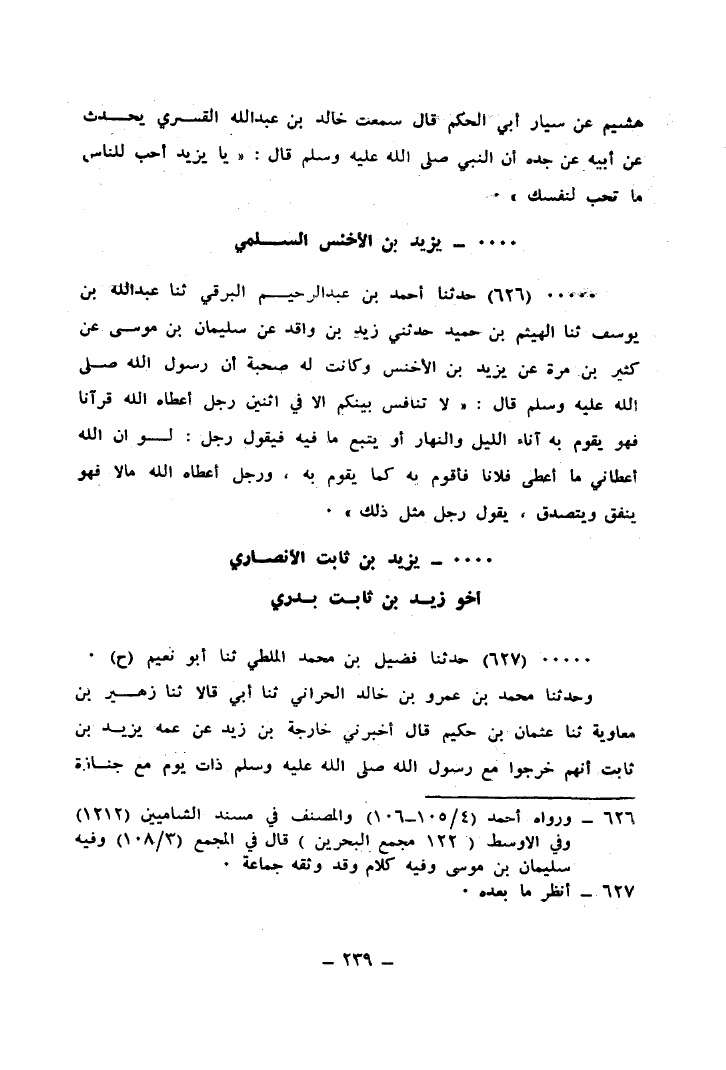 هشيم عن سيار أبي الحكم قال سمعت خالد بن عبدالله القسري يحـــدث
عن أبيه عن جده أن النبي صلى الله عليه وسلم قال : « يا يزيد أحب للناس
ما تحب لنفسك » ٠
٠٠٠٠ ــ يزيد بن الأخنس الســـلمي
٠٠٠٠٠ (٦٢٦) حدثنا أحمد بن عبدالرحيـــم البرقي ثنا عبدالله بن
يوسف ثنا الهيثم بن حميد حدثني زيد بن واقد عن سليمان بن موسـى عن
كثير بن مرة عن يزيد بن الأخنس وكانت له صحبة أن رسول الله صـلى
الله عليه وسلم قال : « لا تنافس بينكم الا في اثنين رجل أعطاه الله قرآنا
فهو يقوم به آناء الليل والنهار أو يتبع ما فيه فيقول رجل : لــو ان الله
أعطاني ما أعطى فلانا فأقوم به كما يقوم به ، ورجل أعطاه الله مالا فهو
ينفق ويتصدق ، يقول رجل مثل ذلك » ٠
٠٠٠٠ ــ يزيد بن ثابت الأنصـاري
أخو زيــد بن ثابــت بــدري
٠٠٠٠٠ (٦٢٧) حدثنا فضيل بن محمد الملطي ثنا أبو نعيم (ح) ٠
وحدثنا محمد بن عمرو بن خالد الحراني ثنا أبي قالا ثنا زهــير بن
معاوية ثنا عثمان بن حكيم قال أخبرني خارجة بن زيد عن عمه يزيــد بن
ثابت أنهم خرجوا مع رسول الله صلى الله عليه وسلم ذات يوم مع جنــازة
٦٢٦ ــ ورواه أحمد (٤/١٠٥ــ١٠٦) والمصنف في مسند الشاميين (١٢١٢)
وفي الاوسط ( ١٢٢ مجمع البحرين ) قال في المجمع (٣/١٠٨) وفيه
سليمان بن موسى وفيه كلام وقد وثقه جماعة ٠
٦٢٧ ــ أنظر ما بعده ٠
ــ ٢٣٩ ــ